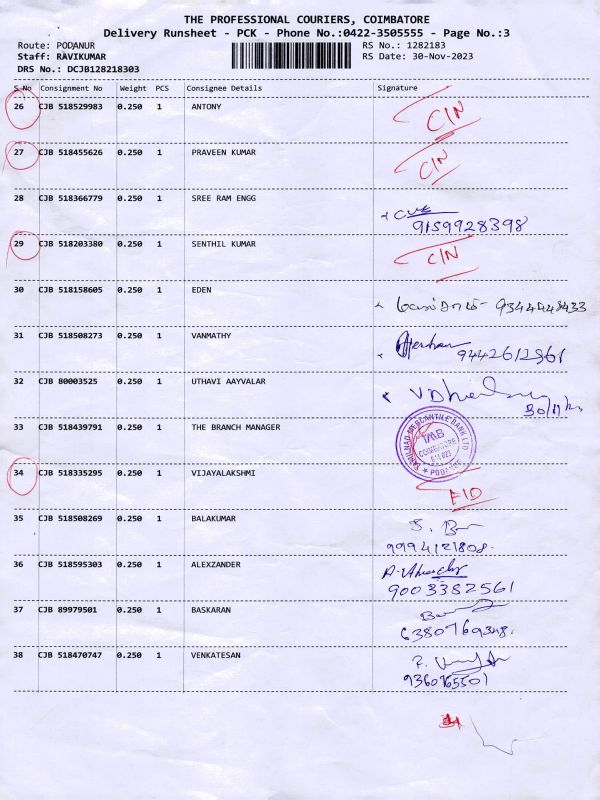 THE PROFESSIONAL COURIERS, COIMBATORE
Delivery Runsheet - PCK - Phone No.:0422-3505555 - Page No.:3
Route: PODANUR
RS No.: 1282183
Staff: RAVIKUMAR
RS Date: 30-Nov-2023
DRS No.: DCJB128218303
S No Consignment No Weight PCS Consignee Details Signature
26 CJB 518529983 0.250 1 ANTONY CIN
27 CJB 518455626 0.250 1 PRAVEEN KUMAR CIN
28 CJB 518366779 0.250 1 SREE RAM ENGG
9159928398
29 CJB 518203380 0.250 1 SENTHIL KUMAR CIN
30 CJB 518158605 0.250 1 EDEN
9344448433
31 CJB 518508273 0.250 1 VANMATHY
9442612961
32 CJB 80003525 0.250 1 UTHAVI AAYVALAR
33 CJB 518439791 0.250 1 THE BRANCH MANAGER
TAMILNAD MERCANTILE BANK LTD
TMB
COIMBATORE
34 CJB 518335295 0.250 1 VIJAYALAKSHMI
35 CJB 518508269 0.250 1 BALAKUMAR
9994121808.
36 CJB 518595303 0.250 1 ALEXZANDER
9003382561
37 CJB 89979501 0.250 1 BASKARAN
38 CJB 518470747 0.250 1 VENKATESAN
9360765501